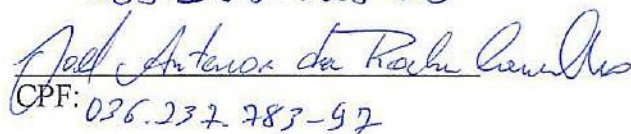 Joel Antenor da Rocha Carvalho
CPF: 036.237.783-97